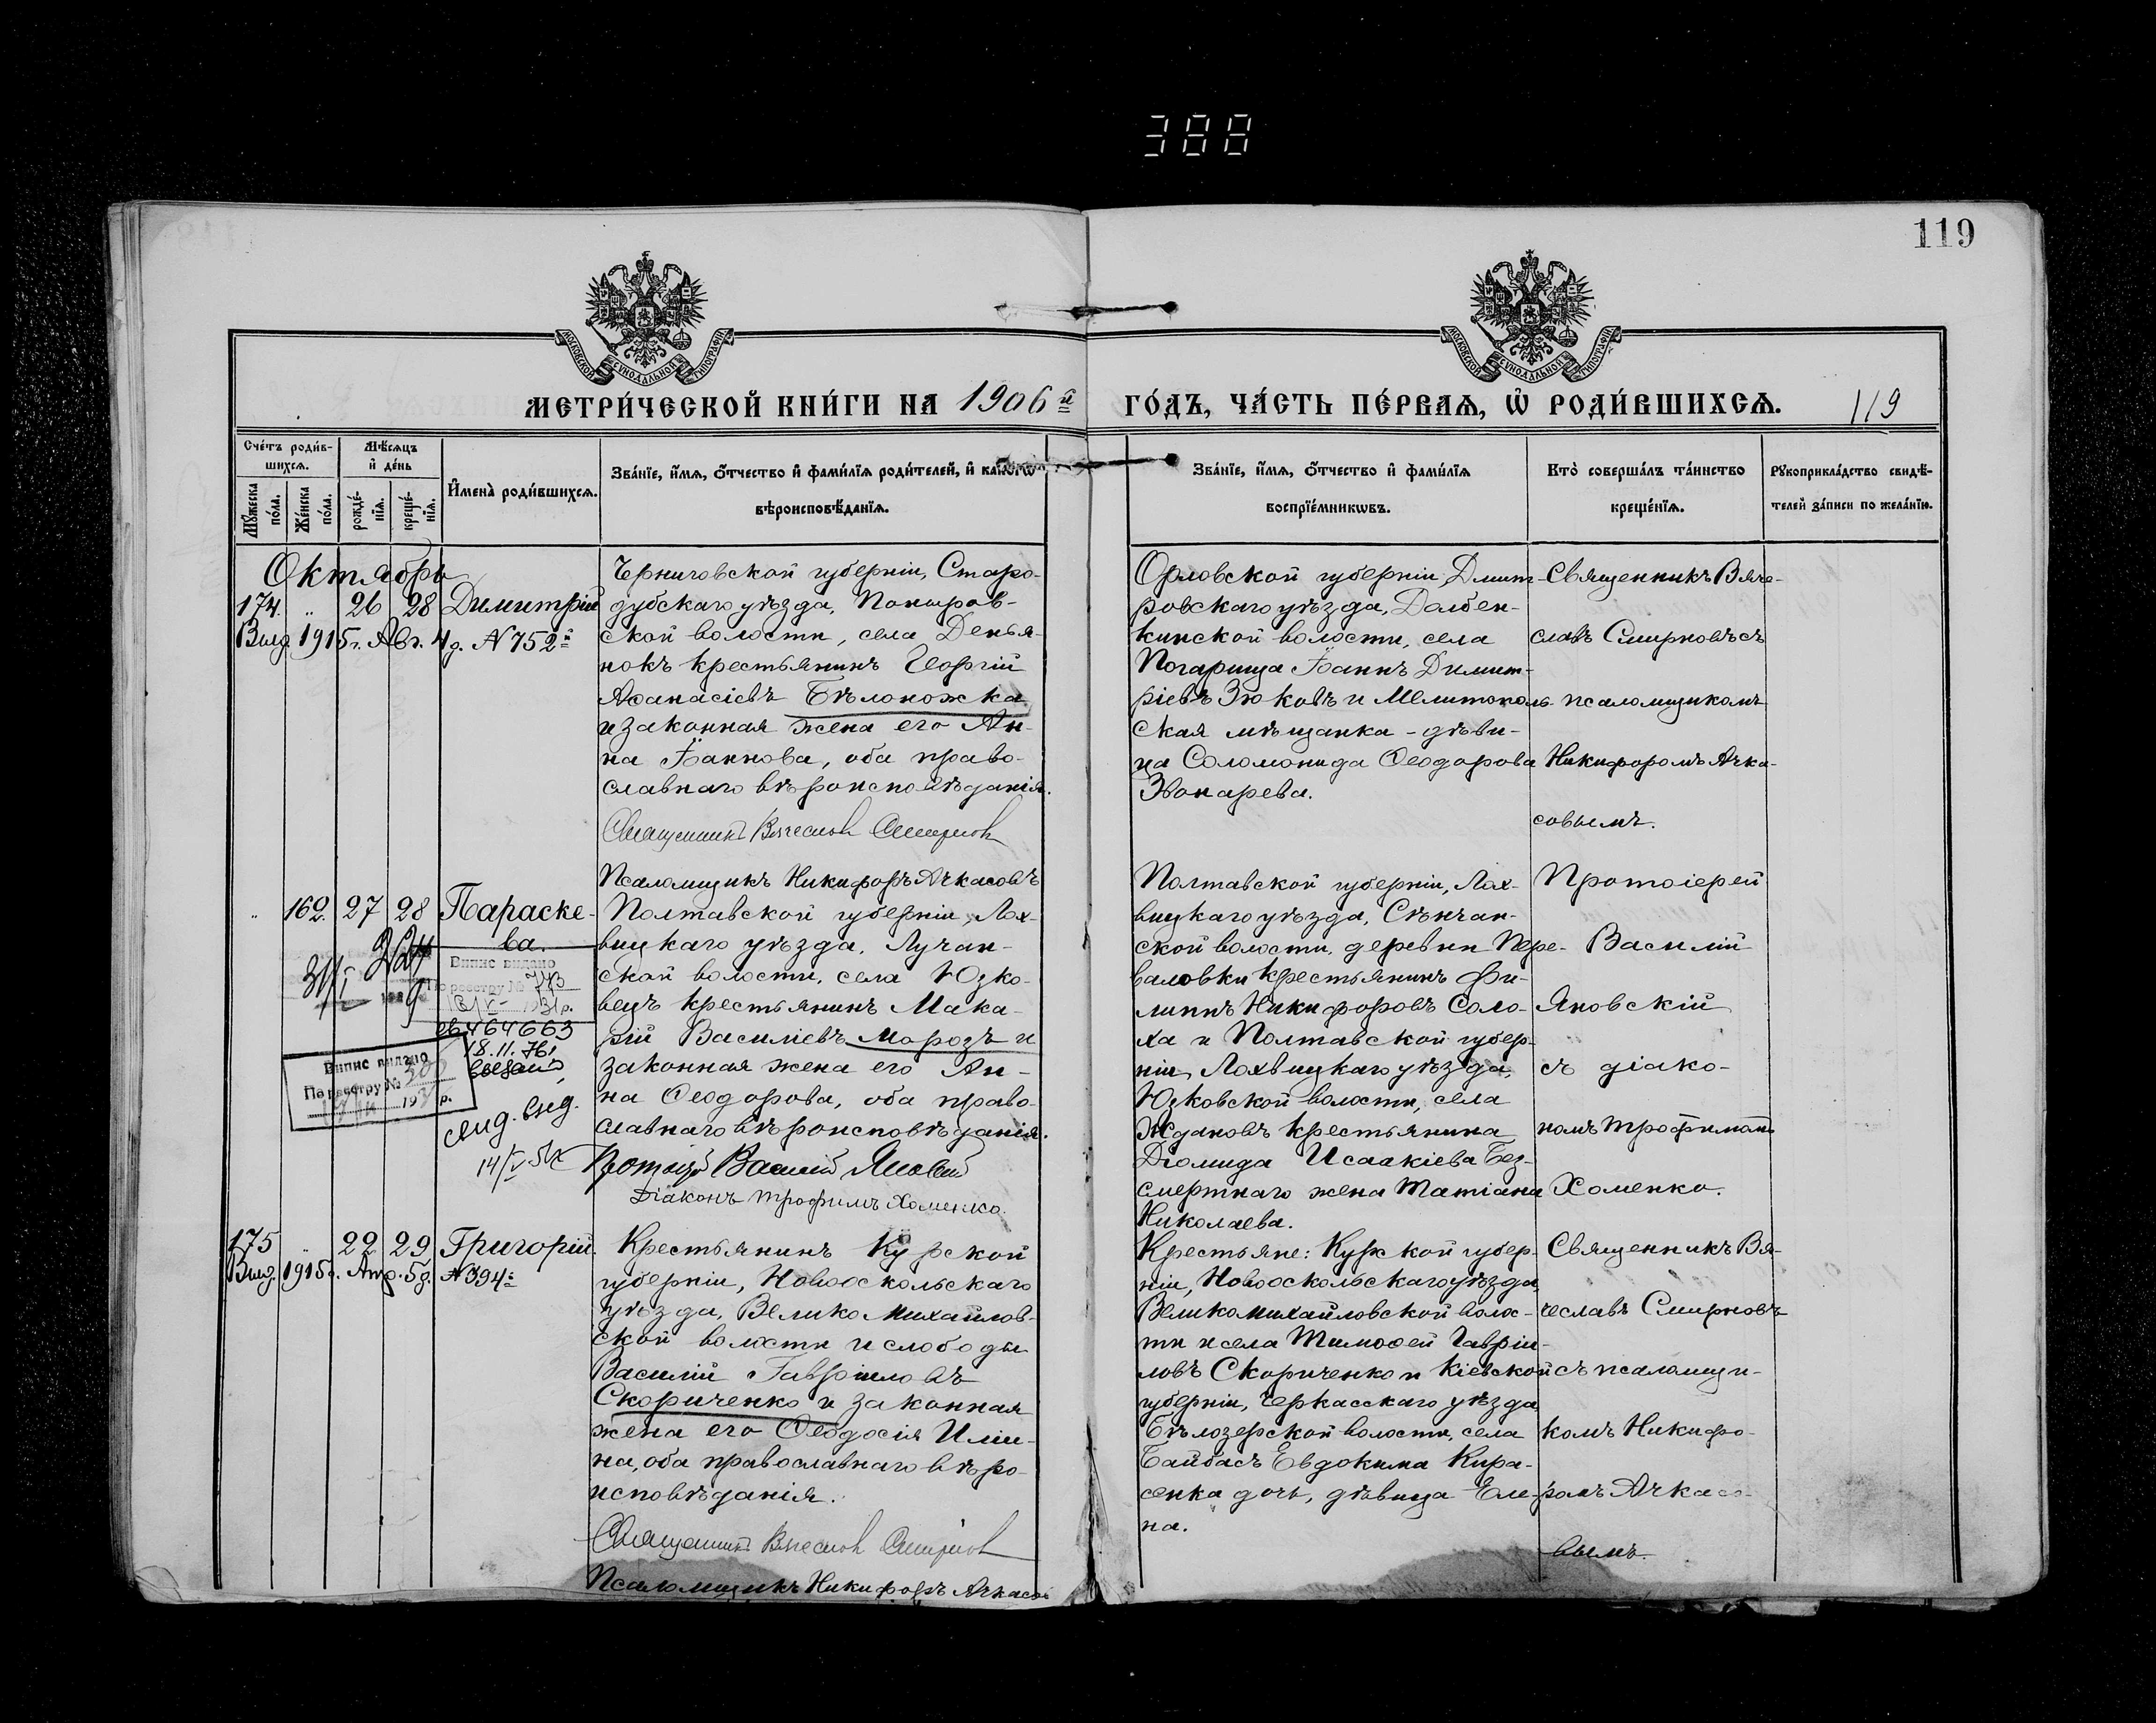 388
119
МОСКОВСКОЙ СУНОДАЛЬНОЙ ТИПОГРАФІИ
МОСКОВСКОЙ СУНОДАЛЬНОЙ ТИПОГРАФІИ
МЕТРИ́ЧЕСКОЙ КНИ́ГИ НА 1906й ГО́ДЪ, ЧА́СТЬ ПЕ́РВАѦ, Ѡ҆ РОДИ́ВШИХСѦ. 119
Сче́тъ роди́в-
шихсѧ.
Мꙋ́жеска по́ла.
Же́нска по́ла.
Мѣ́сѧцъ
и҆ де́нь
рожде́-
нїѧ.
креще́-
нїѧ.
И҆мена̀ роди́вшихсѧ.
Зва́нїе, и҆́мѧ, ѻ҆́тчество и҆ фами́лїѧ роди́телей, и҆ како́гѡ
вѣроисповѣ́данїѧ.
Зва́нїе, и҆́мѧ, ѻ҆́тчество и҆ фами́лїѧ
воспрїе́мникѡвъ.
Кто̀ соверша́лъ та́инство
креще́нїѧ.
Рꙋкоприкла́дство свидѣ́-
телей за́писи по жела́нїю.
Октябрь
174. " 26 28 Димитрій
Выд. 1915г. Авг. 4д. N 752й
Черниговской губерніи, Старо-
дубскаго уѣзда, Понуров-
ской волости, села Демья-
нокъ крестьянинъ Георгій
Аѳанасіевъ Бѣлоножка
и законная жена его Ан-
на Іоаннова, оба право-
славнаго вѣроисповѣданія.
Священникъ Вячеславъ Смирновъ
Псаломщикъ Никифоръ Ачкасовъ
Орловской губерніи, Дмит-
ровскаго уѣзда, Долбен-
кинской волости, села
Погарища Іоаннъ Димит-
ріевъ Зюковъ и Мелитополь-
ская мѣщанка - дѣви-
ца Соломонида Ѳеодорова
Звонарева.
Священникъ Вяче-
славъ Смирновъ съ
псаломщикомъ
Никифоромъ Ачка-
совымъ.
" 162. 27 28 Параске-
ва.
Випис видано
По реестру № 743
31р.
464663
18.11.76.
Випис видано
По реестру №
193 р.
Полтавской губерніи, Лох-
вицкаго уѣзда, Лучан-
ской волости, села Юзко-
вецъ крестьянинъ Мака-
рій Василіевъ Морозъ и
законная жена его Ан-
на Ѳеодорова, оба право-
славнаго вѣроисповѣданія.
Протоіер Василій Яновскій
Діаконъ Трофимъ Хоменко.
Полтавской губерніи, Лох-
вицкаго уѣзда, Сѣнчан-
ской волости, деревни Пере-
валовки крестьянинъ Фи-
липпъ Никифоровъ Соло-
ха и Полтавской губер-
ніи, Лохвицкаго уѣзда,
Юзковской волости, села
Ждановъ крестьянина
Діомида Исаакіева Без-
смертнаго жена Татіана
Николаева.
Протоіерей
Василій
Яновскій
съ діако-
номъ Трофимомъ
Хоменко.
175 22 29 Григорій.
Выд. 1915г. Апр. 5д. N 394й
Крестьянинъ Курской
губерніи, Новооскольскаго
уѣзда, Велико Михайлов-
ской волости и слободы
Василій Гавріиловъ
Скориченко и законная
жена его Ѳеодосія Иліи-
на, оба православнаго вѣро-
исповѣданія.
Священникъ Вячеславъ Смирновъ
Псаломщикъ Никифоръ Ачкасовъ
Крестьяне: Курской губер-
ніи, Новооскольскаго уѣзда,
Великомихайловской волос-
ти и села Тимоѳей Гавріи-
ловъ Скориченко и Кіевской
губерніи, Черкасскаго уѣзда
Бѣлозерской волости, села
Байбасъ Евдокима Кира-
сенка дочь, дѣвица Еле-
на.
Священникъ Вя-
чеславъ Смирновъ
съ псаломщи-
комъ Никифо-
ромъ Ачкасо-
вымъ.